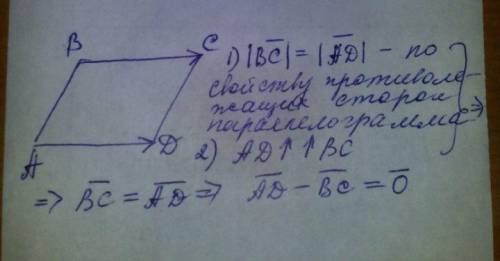 B
C
A
D
1) |B̅C̅| = |A̅D̅| – по
свойству противоле-
жащих сторон
параллелограмма
2) AD ↑↑ BC
⇒
⇒ B̅C̅ = A̅D̅ ⇒ A̅D̅ − B̅C̅ = 0̅